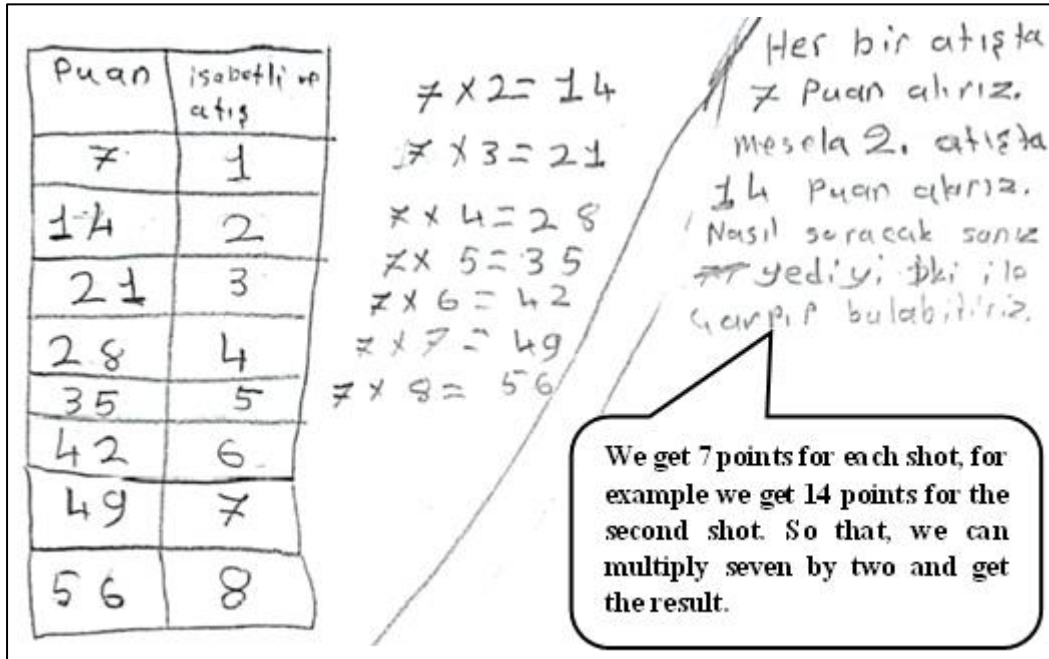 Puan isabetli
atış
7 1
14 2
21 3
28 4
35 5
42 6
49 7
56 8
7 x 2 = 14
7 x 3 = 21
7 x 4 = 28
7 x 5 = 35
7 x 6 = 42
7 x 7 = 49
7 x 8 = 56
Her bir atışta
7 Puan alırız.
mesela 2. atışta
14 Puan alırız.
Nasıl soracak
yediyi iki ile
çarpıp bulabiliriz.
We get 7 points for each shot, for
example we get 14 points for the
second shot. So that, we can
multiply seven by two and get
the result.